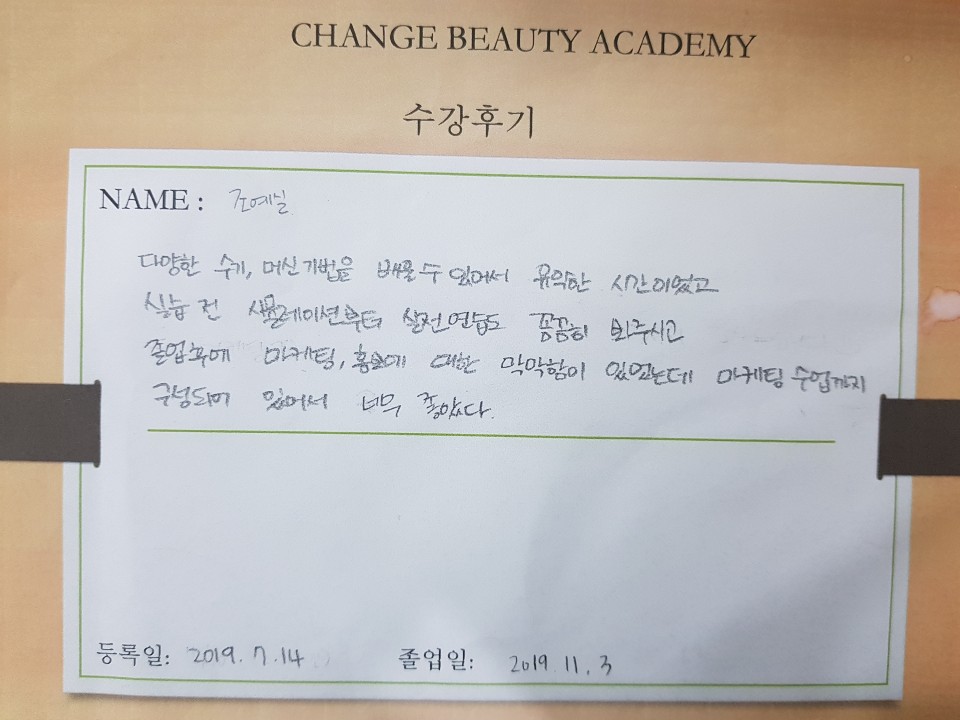 CHANGE BEAUTY ACADEMY
수강후기
NAME : 조예닐
다양한 수기, 머신기법을 배울수 있어서 유익한 시간이었고
실습 전 시뮬레이션부터 실전연습도 꼼꼼히 봐주시고
졸업후에 마케팅, 홍보에 대한 막막함이 있었는데 마케팅 수업까지
구성되어 있어서 너무 좋았다.
등록일: 2019. 7. 14
졸업일: 2019. 11. 3